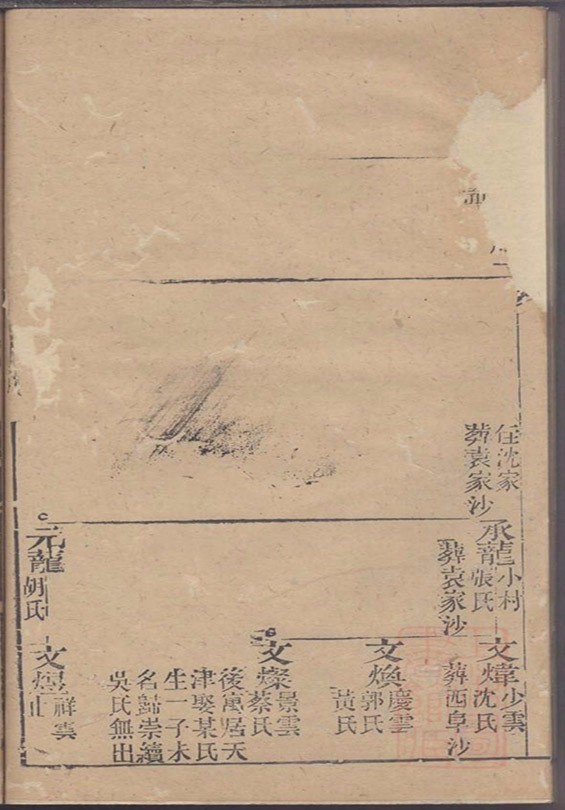 任沈家
葬袁家沙
承龍
小村
張氏
葬袁家沙
元龍
胡氏
文煒
少雲
沈氏
葬西阜沙
文煥
慶雲
郭氏
黃氏
文燦
景雲
蔡氏
後寓居天
津娶某氏
生一子未
名歸崇續
吳氏無出
文煜
祥雲